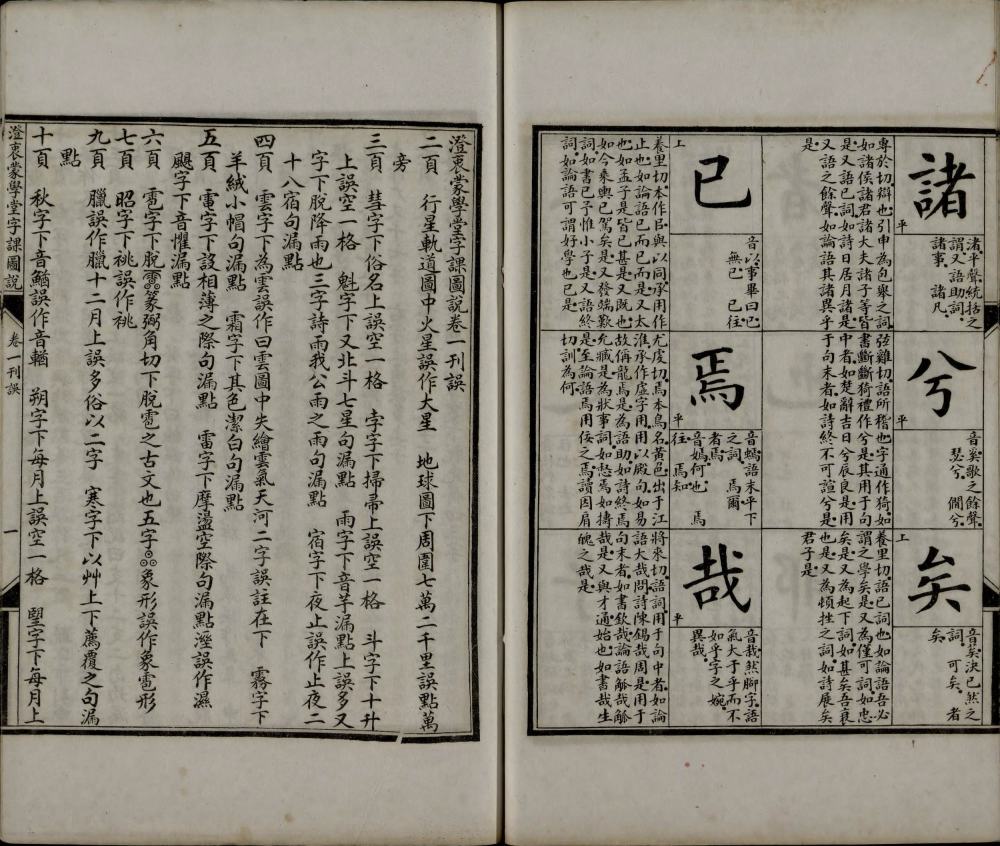 諸
平
諸平聲統括之
謂又語助詞
諸事 諸凡
專於切辯也引申為包舉之詞
如諸侯諸君諸大夫諸子等皆
是又語已詞如詩日居月諸是
又語之餘聲如論語其諸異乎
是
兮
平
音奚歌之餘聲
瑟兮 僩兮
弦雞切語所稽也字通作猗如
書斷斷猗禮作兮是其用于句
中者如楚辭吉日兮辰良是用
于句末者如詩終不可諼兮是
矣
上
音矣決已然之
詞 可矣 者
矣
養里切語已詞也如論語吾必
謂之學矣是又為僅可詞如忠
矣是又為起下詞如甚矣吾衰
也是又為頓挫之詞如詩展矣
君子是
已
上
音以事畢曰已
無已 已往
養里切本作㠯與以同承用作
止也如論語已而已而是又太
也如孟子是皆已甚是又既也
如今乘輿已駕矣是又發端歎
詞如書已予惟小子是又語終
詞如論語可謂好學也已是
焉
平
音蝺語末平下
之詞 焉爾
者焉
音嫣何也 焉
往 焉知
尤虔切焉本鳥名黃色出于江
淮承作虛字用用以殿句如易
故偁龍焉是為語助如詩終焉
允臧是為狀事詞如惄焉如擣
是至論語焉用佞之焉讀因肩
切訓為何
哉
平
音哉然腳字語
氣大于乎而不
如乎字之婉
異哉
將來切語詞用于句中者如論
語大哉問詩陳錫哉周是用于
句末者如書欽哉論語觚哉觚
哉是又與才通始也如書哉生
魄之哉是
澄衷蒙學堂字課圖說卷一刊誤
二頁 行星軌道圖中火星誤作大星 地球圖下周圍七萬二千里誤點萬
旁
三頁 彗字下俗名上誤空一格 孛字下掃帚上誤空一格 斗字下十升
上誤空一格 魁字下又北斗七星句漏點 雨字下音芋漏點上誤多又
字下脫降雨也三字詩雨我公雨之雨句漏點 宿字下夜止誤作止夜二
十八宿句漏點
四頁 雲字下為雲誤作曰雲圖中失繪雲氣天河二字誤註在下 霧字下
羊絨小帽句漏點 霜字下其色潔白句漏點
五頁 電字下設相薄之際句漏點 雷字下摩盪空際句漏點溼誤作濕
颶字下音懼漏點
六頁 雹字下脫篆弼角切下脫雹之古文也五字象形誤作象雹形
七頁 昭字下祧誤作祧
九頁 臘誤作臘十二月上誤多俗以二字 寒字下以艸上下薦覆之句漏
點
十頁 秋字下音鰌誤作音輶 朔字下每月上誤空一格 朢字下每月上
澄衷蒙學堂字課圖說
卷一刊誤
一